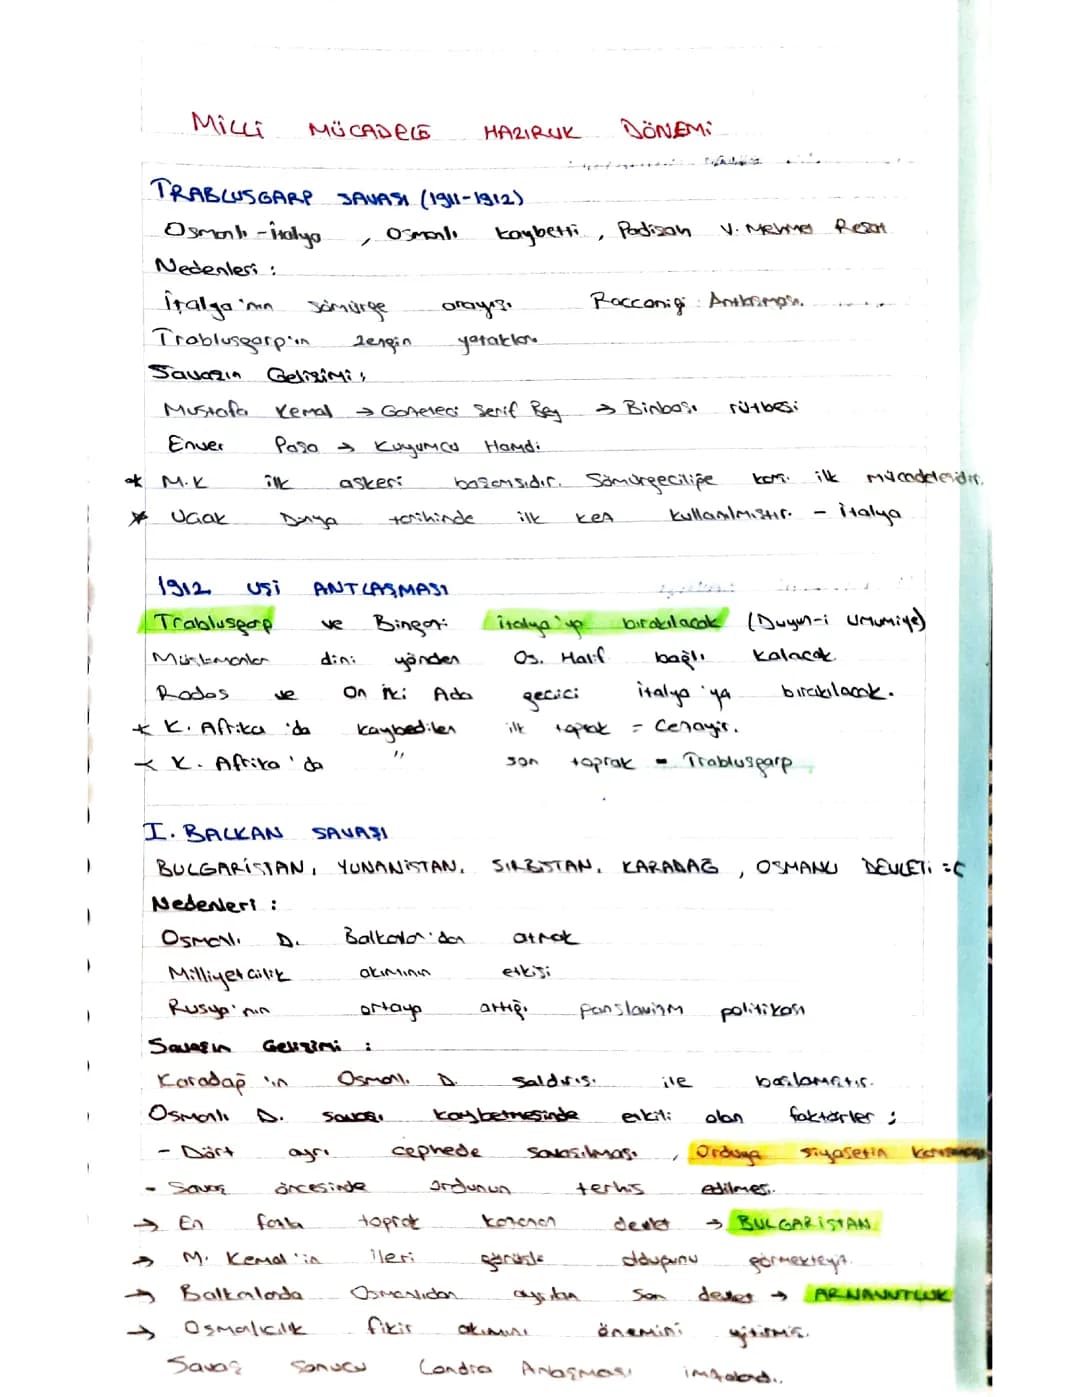 MİLLİ MÜCADELE HAZIRLIK DÖNEMİ
TRABLUSGARP SAVAŞI (1911-1912)
Osmanlı - İtalya, Osmanlı kaybetti, Padişah V. Mehmet Reşat
Nedenleri :
İtalya'nın sömürge arayışı Racconigi Antlaşması
Trablusgarp'ın zengin yatakları
Savaşın Gelişimi ;
Mustafa Kemal → Gazeteci Şerif Bey → Binbaşı rütbesi
Enver Paşa → Kuyumcu Hamdi
* M.K ilk askeri başarısıdır. Sömürgeciliğe karşı ilk mücadelesidir.
* Uçak Dünya tarihinde ilk kez kullanılmıştır. - İtalya
1912 UŞİ ANTLAŞMASI
Trablusgarp ve Bingazi İtalya'ya bırakılacak (Duyun-i Umumiye)
Müslümanlar dini yönden Os. Halife bağlı kalacak.
Rodos ve On İki Ada geçici İtalya'ya bırakılacak.
* K. Afrika'da kaybedilen ilk toprak = Cezayir.
* K. Afrika'da " son toprak = Trablusgarp
I. BALKAN SAVAŞI
BULGARİSTAN, YUNANİSTAN, SIRBİSTAN, KARADAĞ, OSMANLI DEVLETİ =(
Nedenleri :
Osmanlı D. Balkanlar'dan atmak
Milliyetçilik akımının etkisi
Rusya'nın ortaya attığı panslavizm politikası
Savaşın Gelişimi :
Karadağ'ın Osmanlı D. saldırısı ile başlamıştır.
Osmanlı D. savaşı kaybetmesinde etkili olan faktörler ;
- Dört ayrı cephede savaşılması, Orduya siyasetin karışması
- Savaş öncesinde ordunun terhis edilmesi.
→ En fazla toprak kazanan devlet → BULGARİSTAN
→ M. Kemal'in ileri görüşlü olduğunu görmekteyiz.
→ Balkanlarda Osmanlıdan ayrılan son devlet → ARNAVUTLUK
→ Osmalıcılık fikir akımını önemini yitirmiş.
Savaş sonucu Londra Antlaşması imzalandı..